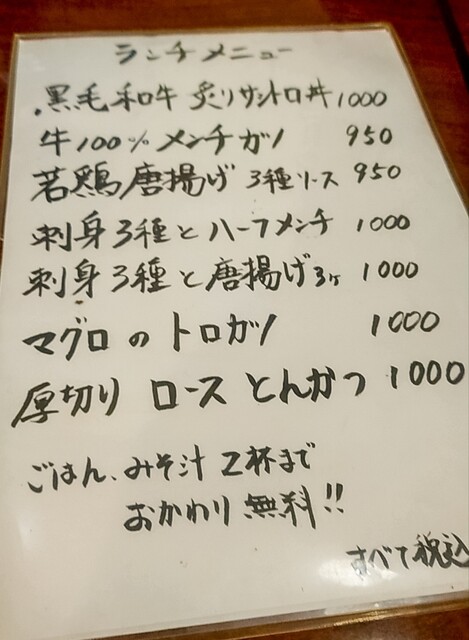 ランチメニュー
黒毛和牛 炙りサントロ丼 1000
牛100% メンチカツ 950
若鶏唐揚げ 3種ソース 950
刺身3種とハーフメンチ 1000
刺身3種と唐揚げ3ヶ 1000
マグロのトロカツ 1000
厚切り ロースとんかつ 1000
ごはん、みそ汁 2杯まで
おかわり無料!!
すべて税込